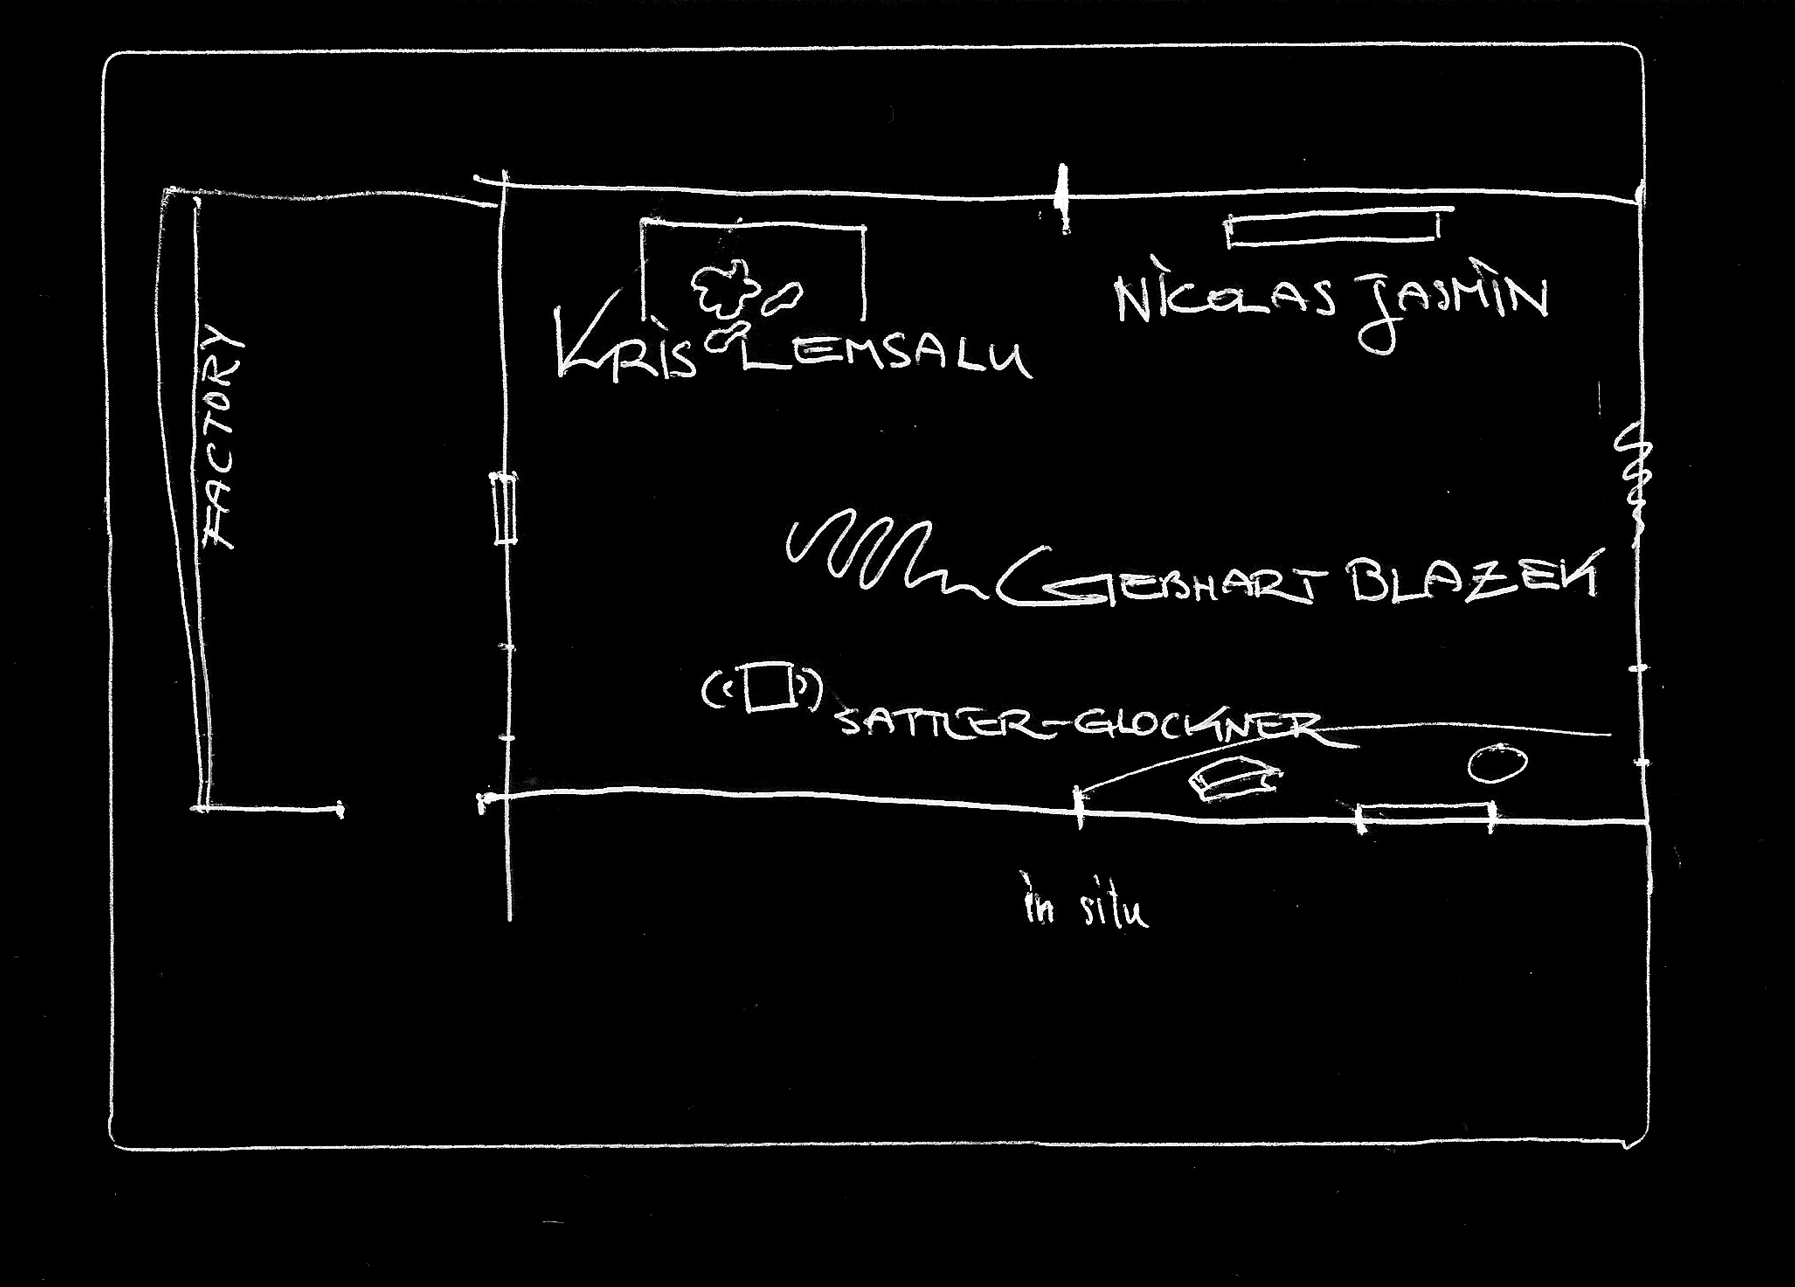 FACTORY
KRIS LEMSALU
NICOLAS JASMIN
GEBHART BLAZEK
SATTLER-GLOCKNER
in situ